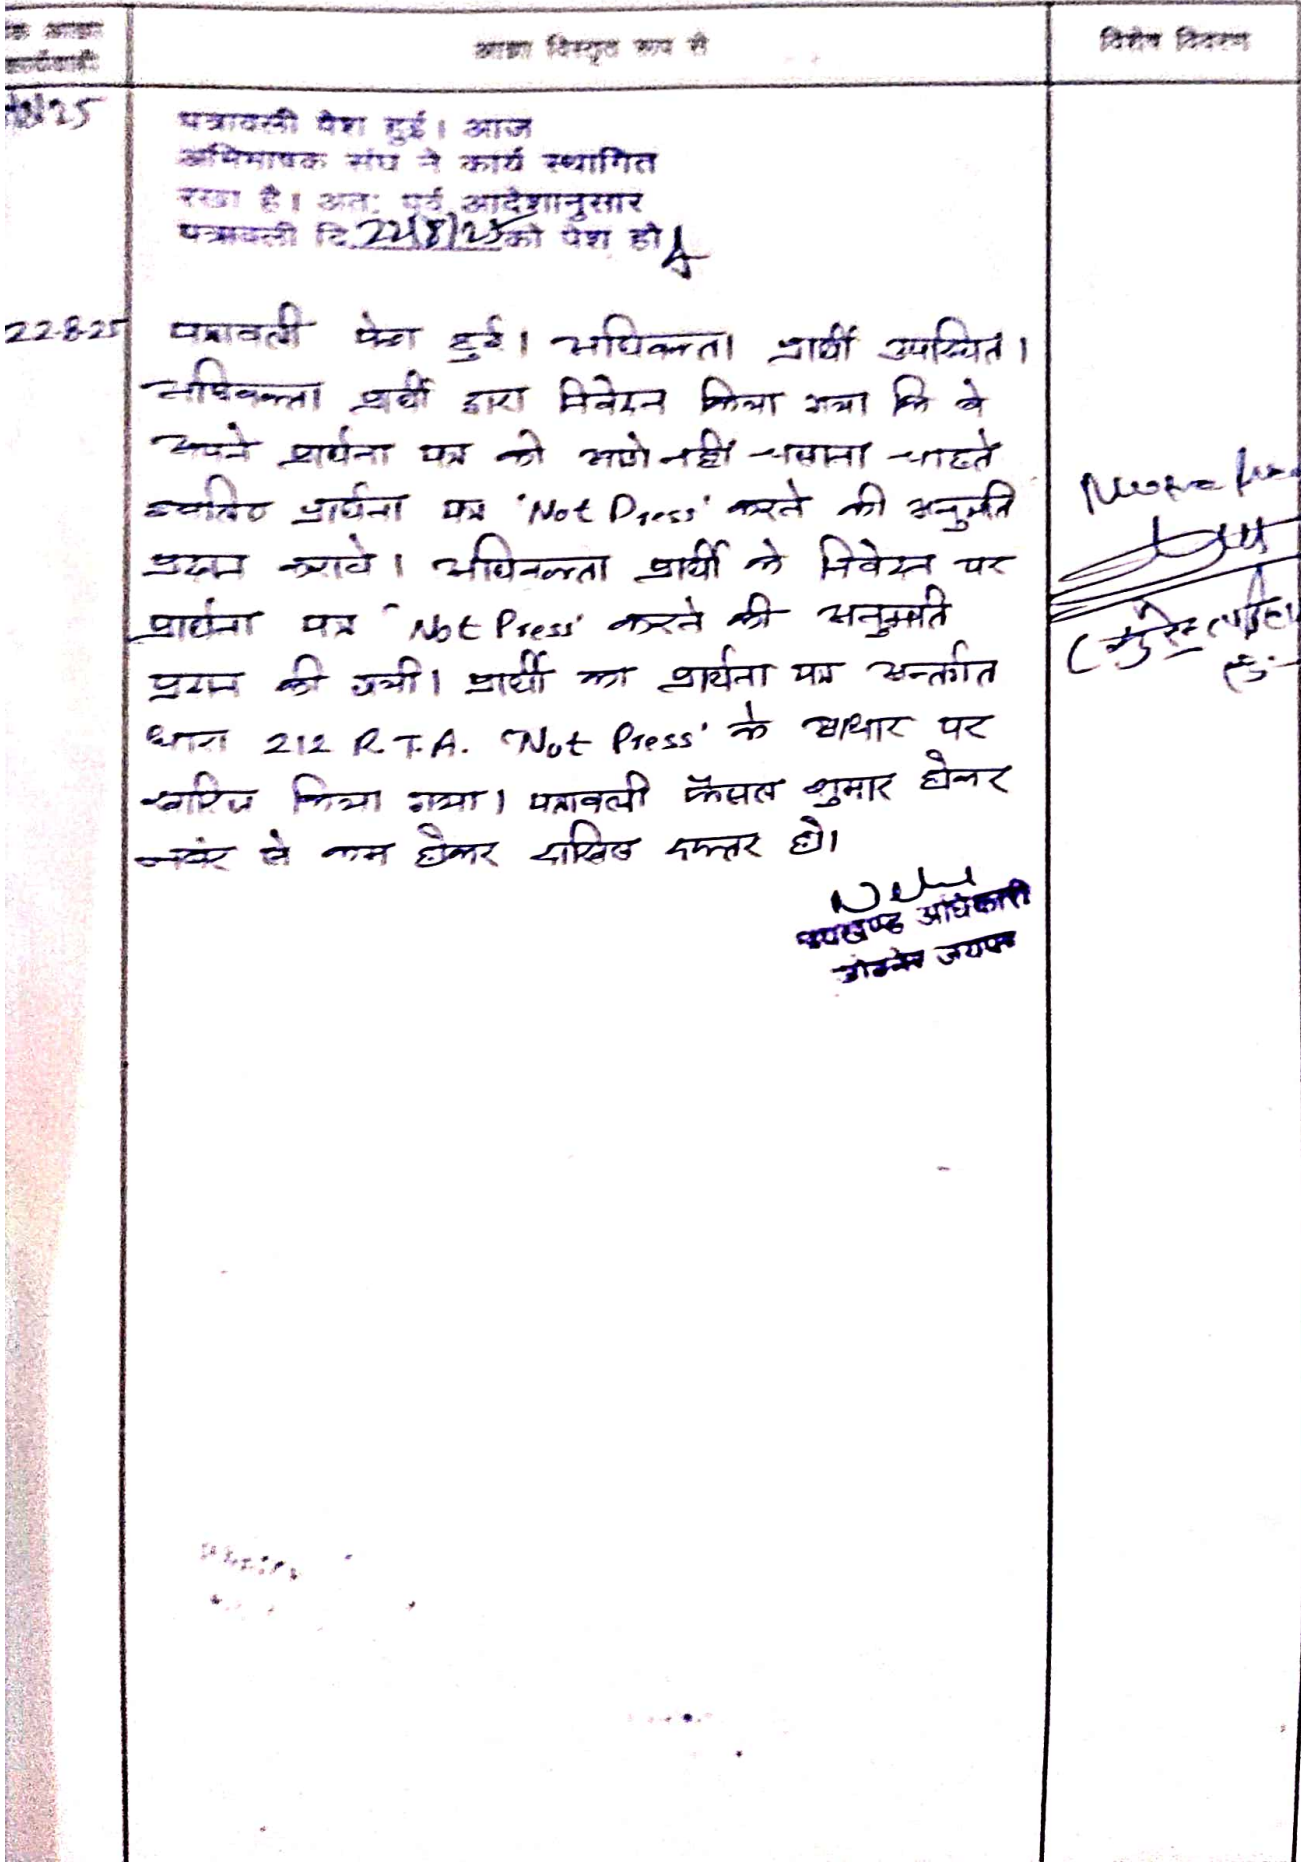 आज्ञा विस्तृत रूप से
विशेष विवरण
पत्रावली पेश हुई। आज
अभिभाषक संघ ने कार्य स्थागित
रखा है। अतः पूर्व आदेशानुसार
पत्रावली दि. 22/8/25 को पेश हो
22-8-25
पत्रावली पेश हुई। अधिवक्ता प्रार्थी उपस्थित।
अधिवक्ता प्रार्थी द्वारा निवेदन किया गया कि वे
अपने प्रार्थना पत्र को आगे नहीं चलाना चाहते
इसलिए प्रार्थना पत्र 'Not Press' करने की अनुमति
प्रदान करावे। अधिवक्ता प्रार्थी के निवेदन पर
प्रार्थना पत्र "Not Press' करने की अनुमति
प्रदान की गयी। प्रार्थी का प्रार्थना पत्र अन्तर्गत
धारा 212 R.T.A. 'Not Press' के आधार पर
खारिज किया गया। पत्रावली फैसल शुमार होकर
नम्बर से कम होकर दाखिल दफ्तर हो।
उपखण्ड अधिकारी